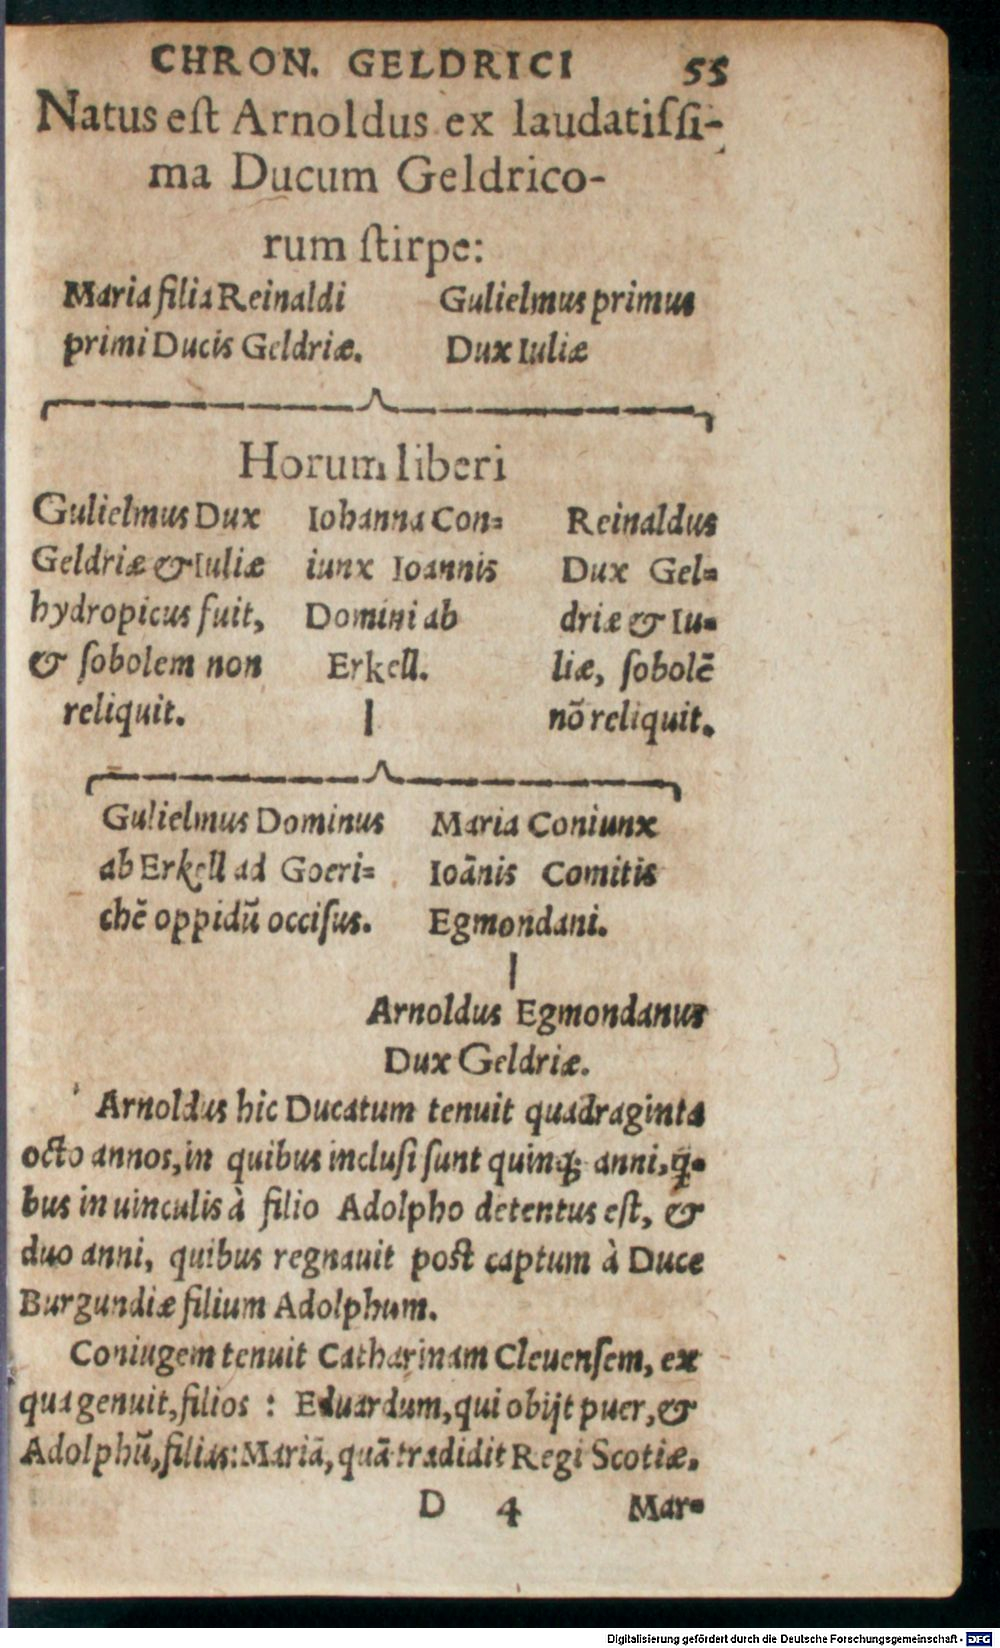 CHRON. GELDRICI 55
Natus eſt Arnoldus ex laudatiſſi-
ma Ducum Geldrico-
rum ſtirpe:
Maria filia Reinaldi
primi Ducis Geldriæ.
Gulielmus primus
Dux Iuliæ
Horum liberi
Gulielmus Dux
Geldriæ & Iuliæ
hydropicus fuit,
& ſobolem non
reliquit.
Iohanna Con=
iunx Ioannis
Domini ab
Erkell.
Reinaldus
Dux Gel=
driæ & Iu=
liæ, ſobolē
nō reliquit.
Gulielmus Dominus
ab Erkell ad Goeri=
chē oppidū occiſus.
Maria Coniunx
Ioānis Comitis
Egmondani.
Arnoldus Egmondanus
Dux Geldriæ.
Arnoldus hic Ducatum tenuit quadraginta
octo annos, in quibus incluſi ſunt quinq; anni, q̄=
bus in uinculis à filio Adolpho detentus eſt, &
duo anni, quibus regnauit poſt captum à Duce
Burgundiæ filium Adolphum.
Coniugem tenuit Catharinam Cleuenſem, ex
qua genuit, filios : Eduardum, qui obijt puer, &
Adolphū, filias: Mariā, quā tradidit Regi Scotiæ.
D 4 Mar=
Digitalisierung gefördert durch die Deutsche Forschungsgemeinschaft - DFG